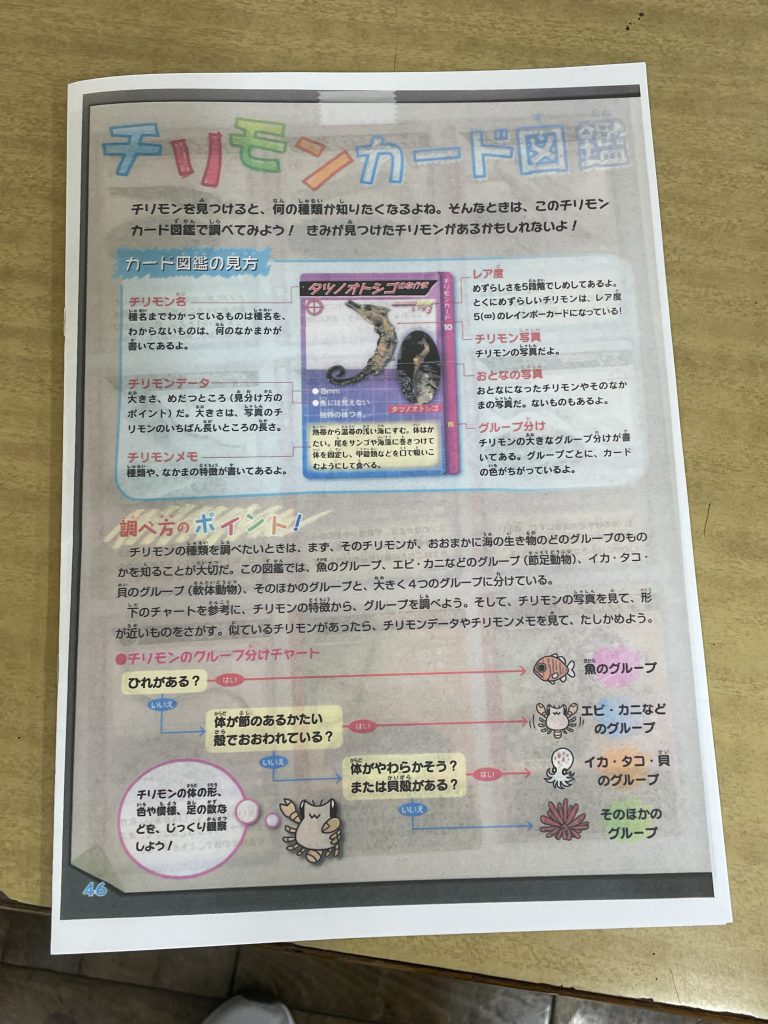 チリモンカード図鑑
チリモンを見つけると、何の種類か知りたくなるよね。そんなときは、このチリモン
カード図鑑で調べてみよう！ きみが見つけたチリモンがあるかもしれないよ！
カード図鑑の見方
チリモン名
種名までわかっているものは種名を、
わからないものは、何のなかまかが
書いてあるよ。
チリモンデータ
大きさ、めだつところ（見分け方の
ポイント）だ。大きさは、写真のチ
リモンのいちばん長いところの長さ。
チリモンメモ
種類や、なかまの特徴が書いてあるよ。
タツノオトシゴ
チリモンカード
10
●8mm
●魚には見えない
独特の体つき。
タツノオトシゴ
熱帯から温帯の浅い海にすむ。体はか
たい。尾をサンゴや海藻に巻きつけて
体を固定し、甲殻類などを口で吸いこ
むようにして食べる。
魚
レア度
めずらしさを5段階でしめしてあるよ。
とくにめずらしいチリモンは、レア度
5(∞)のレインボーカードになっている！
チリモン写真
チリモンの写真だよ。
おとなの写真
おとなになったチリモンやそのなか
まの写真だ。ないものもあるよ。
グループ分け
チリモンの大きなグループ分けが書
いてある。グループごとに、カード
の色がちがっているよ。
調べ方のポイント！
チリモンの種類を調べたいときは、まず、そのチリモンが、おおまかに海の生き物のどのグループのもの
かを知ることが大切だ。この図鑑では、魚のグループ、エビ・カニなどのグループ（節足動物）、イカ・タコ・
貝のグループ（軟体動物）、そのほかのグループと、大きく4つのグループに分けている。
下のチャートを参考に、チリモンの特徴から、グループを調べよう。そして、チリモンの写真を見て、形
が近いものをさがす。似ているチリモンがあったら、チリモンデータやチリモンメモを見て、たしかめよう。
●チリモンのグループ分けチャート
ひれがある？
はい
魚のグループ
いいえ
体が節のあるかたい
殻でおおわれている？
はい
エビ・カニなど
のグループ
いいえ
体がやわらかそう？
または貝殻がある？
はい
イカ・タコ・貝
のグループ
いいえ
そのほかの
グループ
チリモンの体の形、
色や模様、足の数な
どを、じっくり観察
しよう！
46